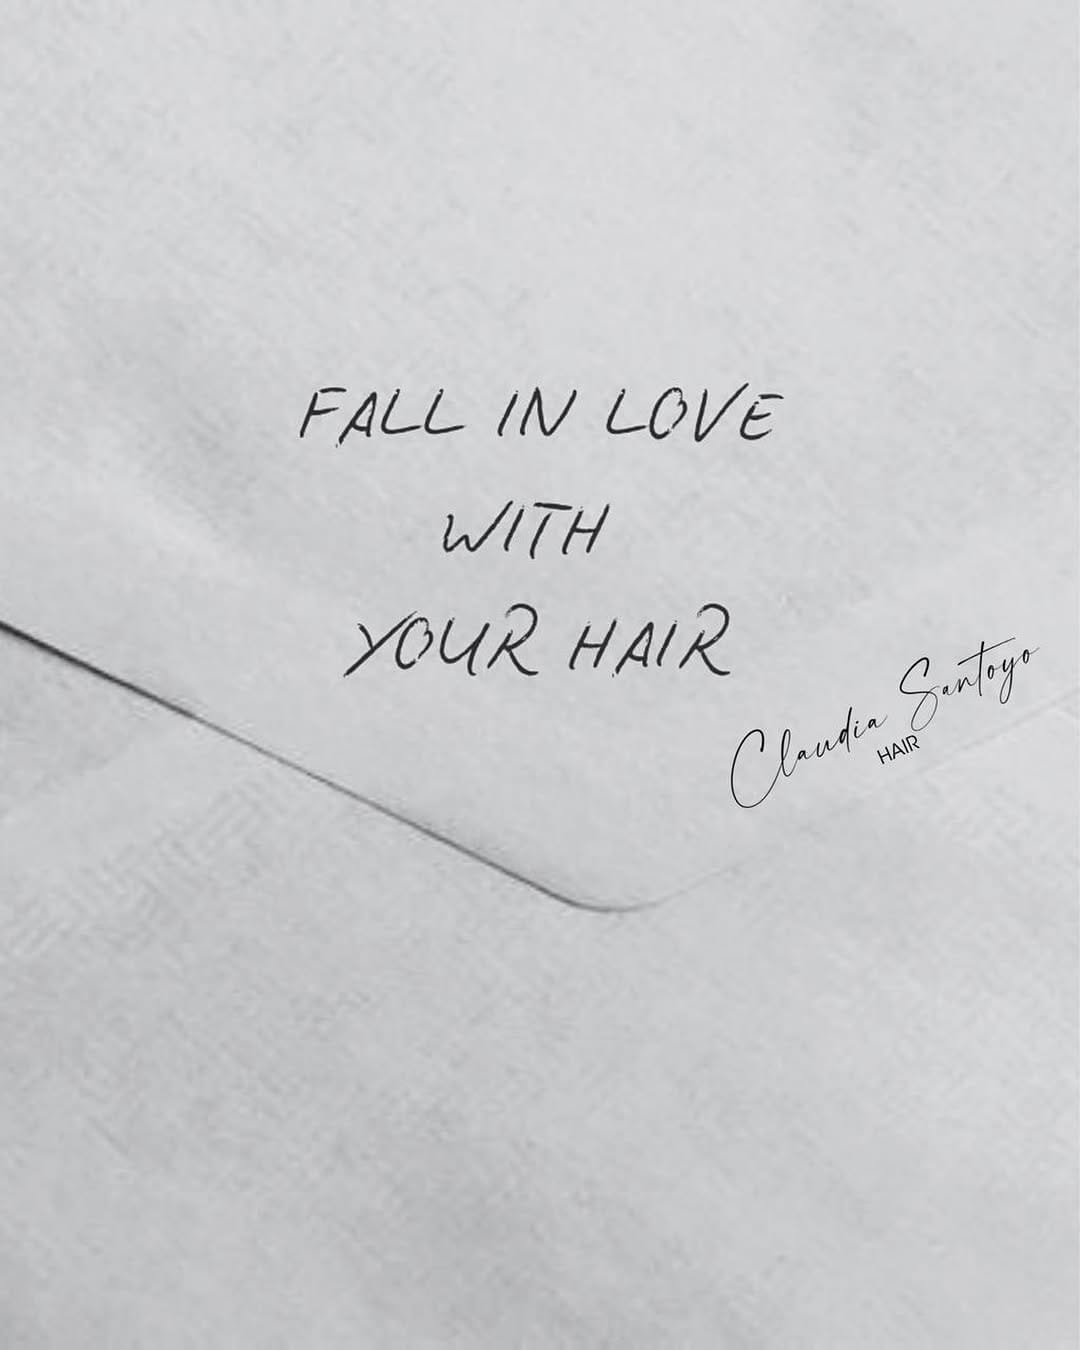 FALL IN LOVE
WITH
YOUR HAIR
Claudia Santoyo
HAIR